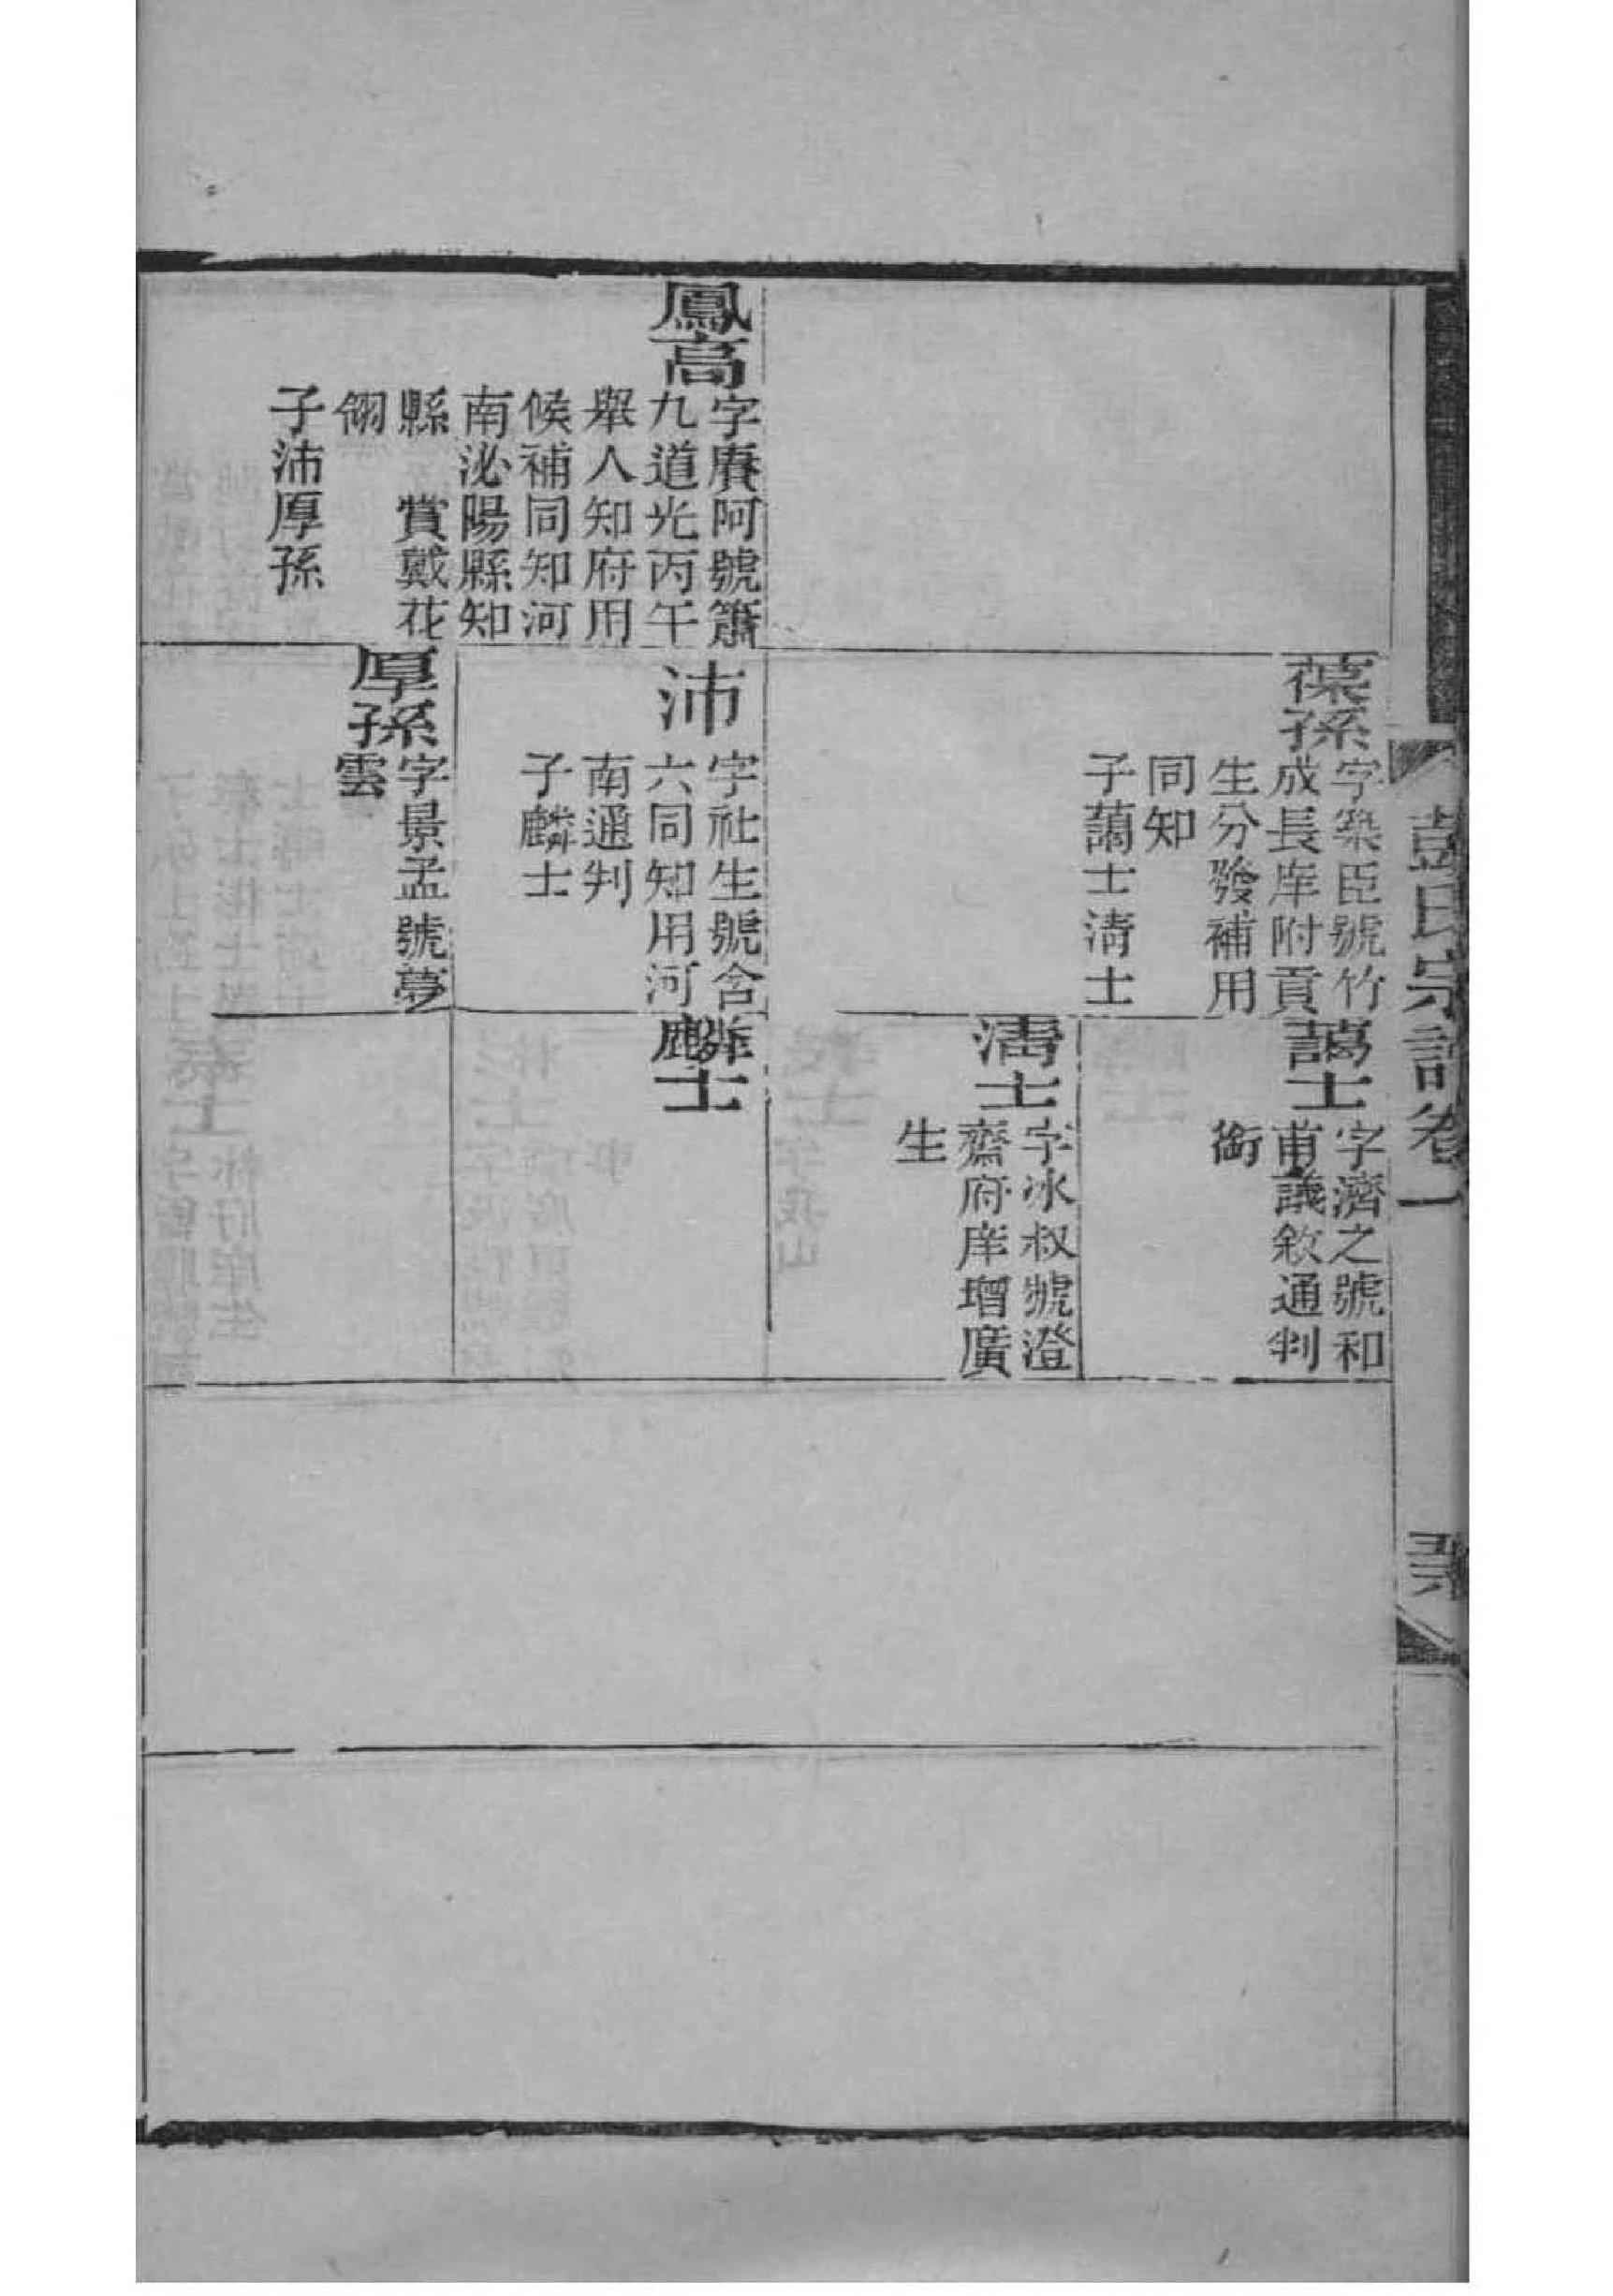 彭氏宗譜卷一
葆孫
字榘臣號竹
成長庠附貢
生分發補用
同知
子藹士清士
藹士
字濟之號和
甫議敘通判
銜
清士
字冰叔號澄
齋府庠增廣
生
鳳高
字賡阿號簫
九道光丙午
舉人知府用
候補同知河
南泌陽縣知
縣　賞戴花
翎
子沛厚孫
沛
字社生號含
六同知用河
南通判
子麟士
麟士
厚孫
字景孟號夢
雲